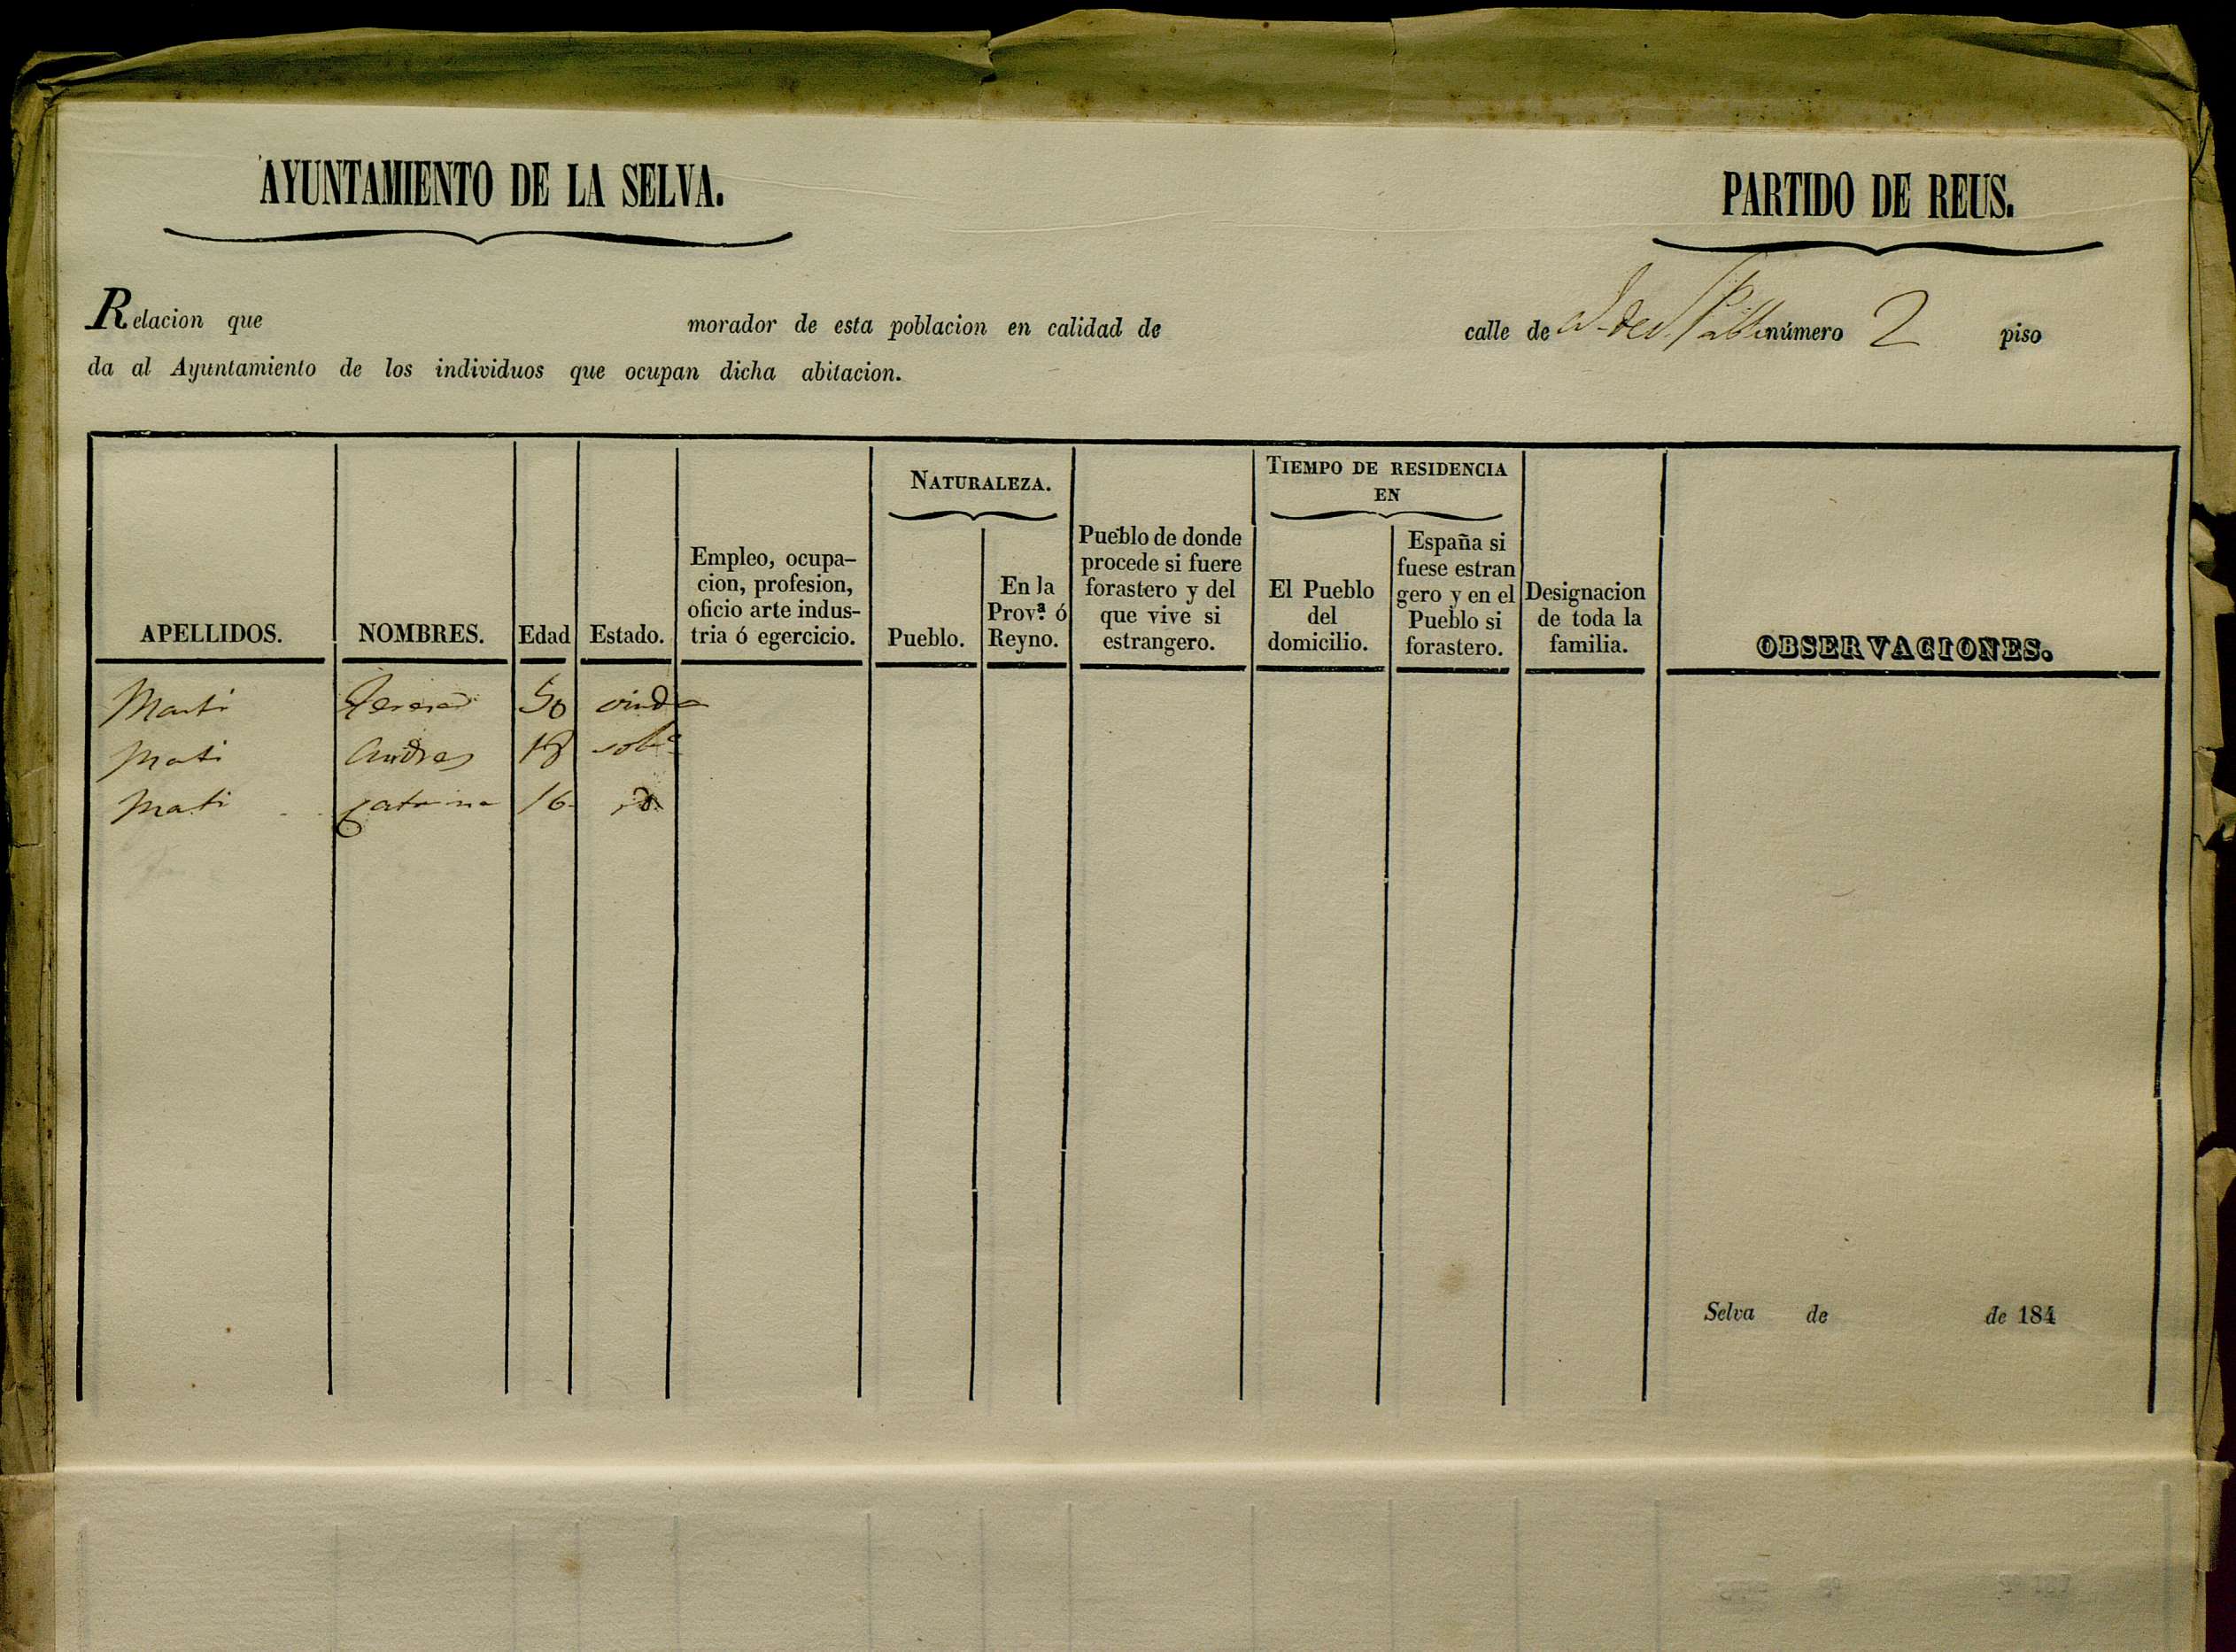 AYUNTAMIENTO DE LA SELVA.
PARTIDO DE REUS.
Relacion que morador de esta poblacion en calidad de calle de número 2 piso
da al Ayuntamiento de los individuos que ocupan dicha abitacion.
NATURALEZA.
TIEMPO DE RESIDENCIA
EN
APELLIDOS.
NOMBRES.
Edad
Estado.
Empleo, ocupa-
cion, profesion,
oficio arte indus-
tria ó egercicio.
Pueblo.
En la
Prov.ª ó
Reyno.
Pueblo de donde
procede si fuere
forastero y del
que vive si
estrangero.
El Pueblo
del
domicilio.
España si
fuese estran
gero y en el
Pueblo si
forastero.
Designacion
de toda la
familia.
OBSERVACIONES.
Marti Teresa 50 viuda
Mati Andres 18
Mati Catarina 16
Selva de de 184